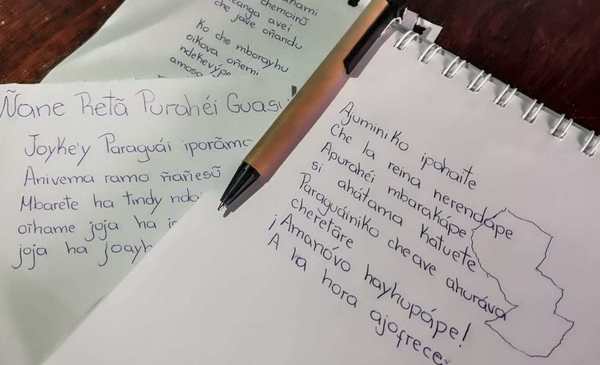 chemoinũ
canga avei
che jave oñandu
Ko che mborayhu
oikova oñemi
ndekevýpe
amoso
Ñane Retã Purahéi Guasu
Joyke'y Paraguái iporãma
Anivema ramo ñañesũ
Mbarete ha tindy
oĩhame joja ha
joja ha joayh
Ajuminiko ipohaite
Che la reina nerendápe
Apurahéi mbarakápe
si ahátama katuete
Paraguáiniko cheave ahuráva
cheretãre
¡Amanóvo hayhupápe!
A la hora ajofrece